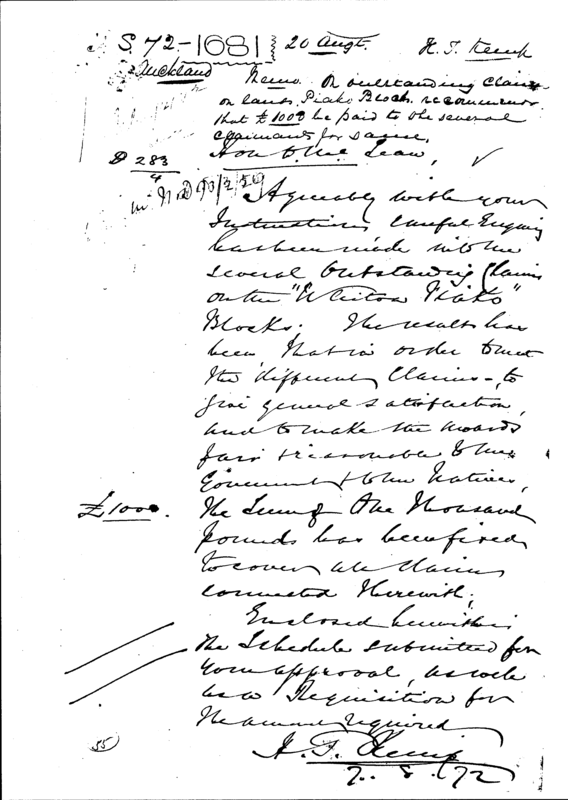 S. 72-1681 20 Augt. H. T. Kemp
Auckland
Memo. On outstanding Claims
on lands Piako Block. recommends
that £1000 be paid to the several
claimants for same.
D 283
4
Hon. the Mr. Lean,
Agreeably with your
Instructions careful Enquiry
has been made into the
several Outstanding Claims
on the " Piako"
Blocks. The result has
been, that in order to meet
the different Claims, to
give general satisfaction,
and to make the awards
fair & reasonable to the
Government & to the Natives,
£1000. The Sum of One Thousand
pounds has been fixed
to cover all claims
connected therewith.
Enclosed herewith is
the Schedule submitted for
your approval, as well
as a Requisition for
the amount required
H. T. Kemp
7. 8. /72
55